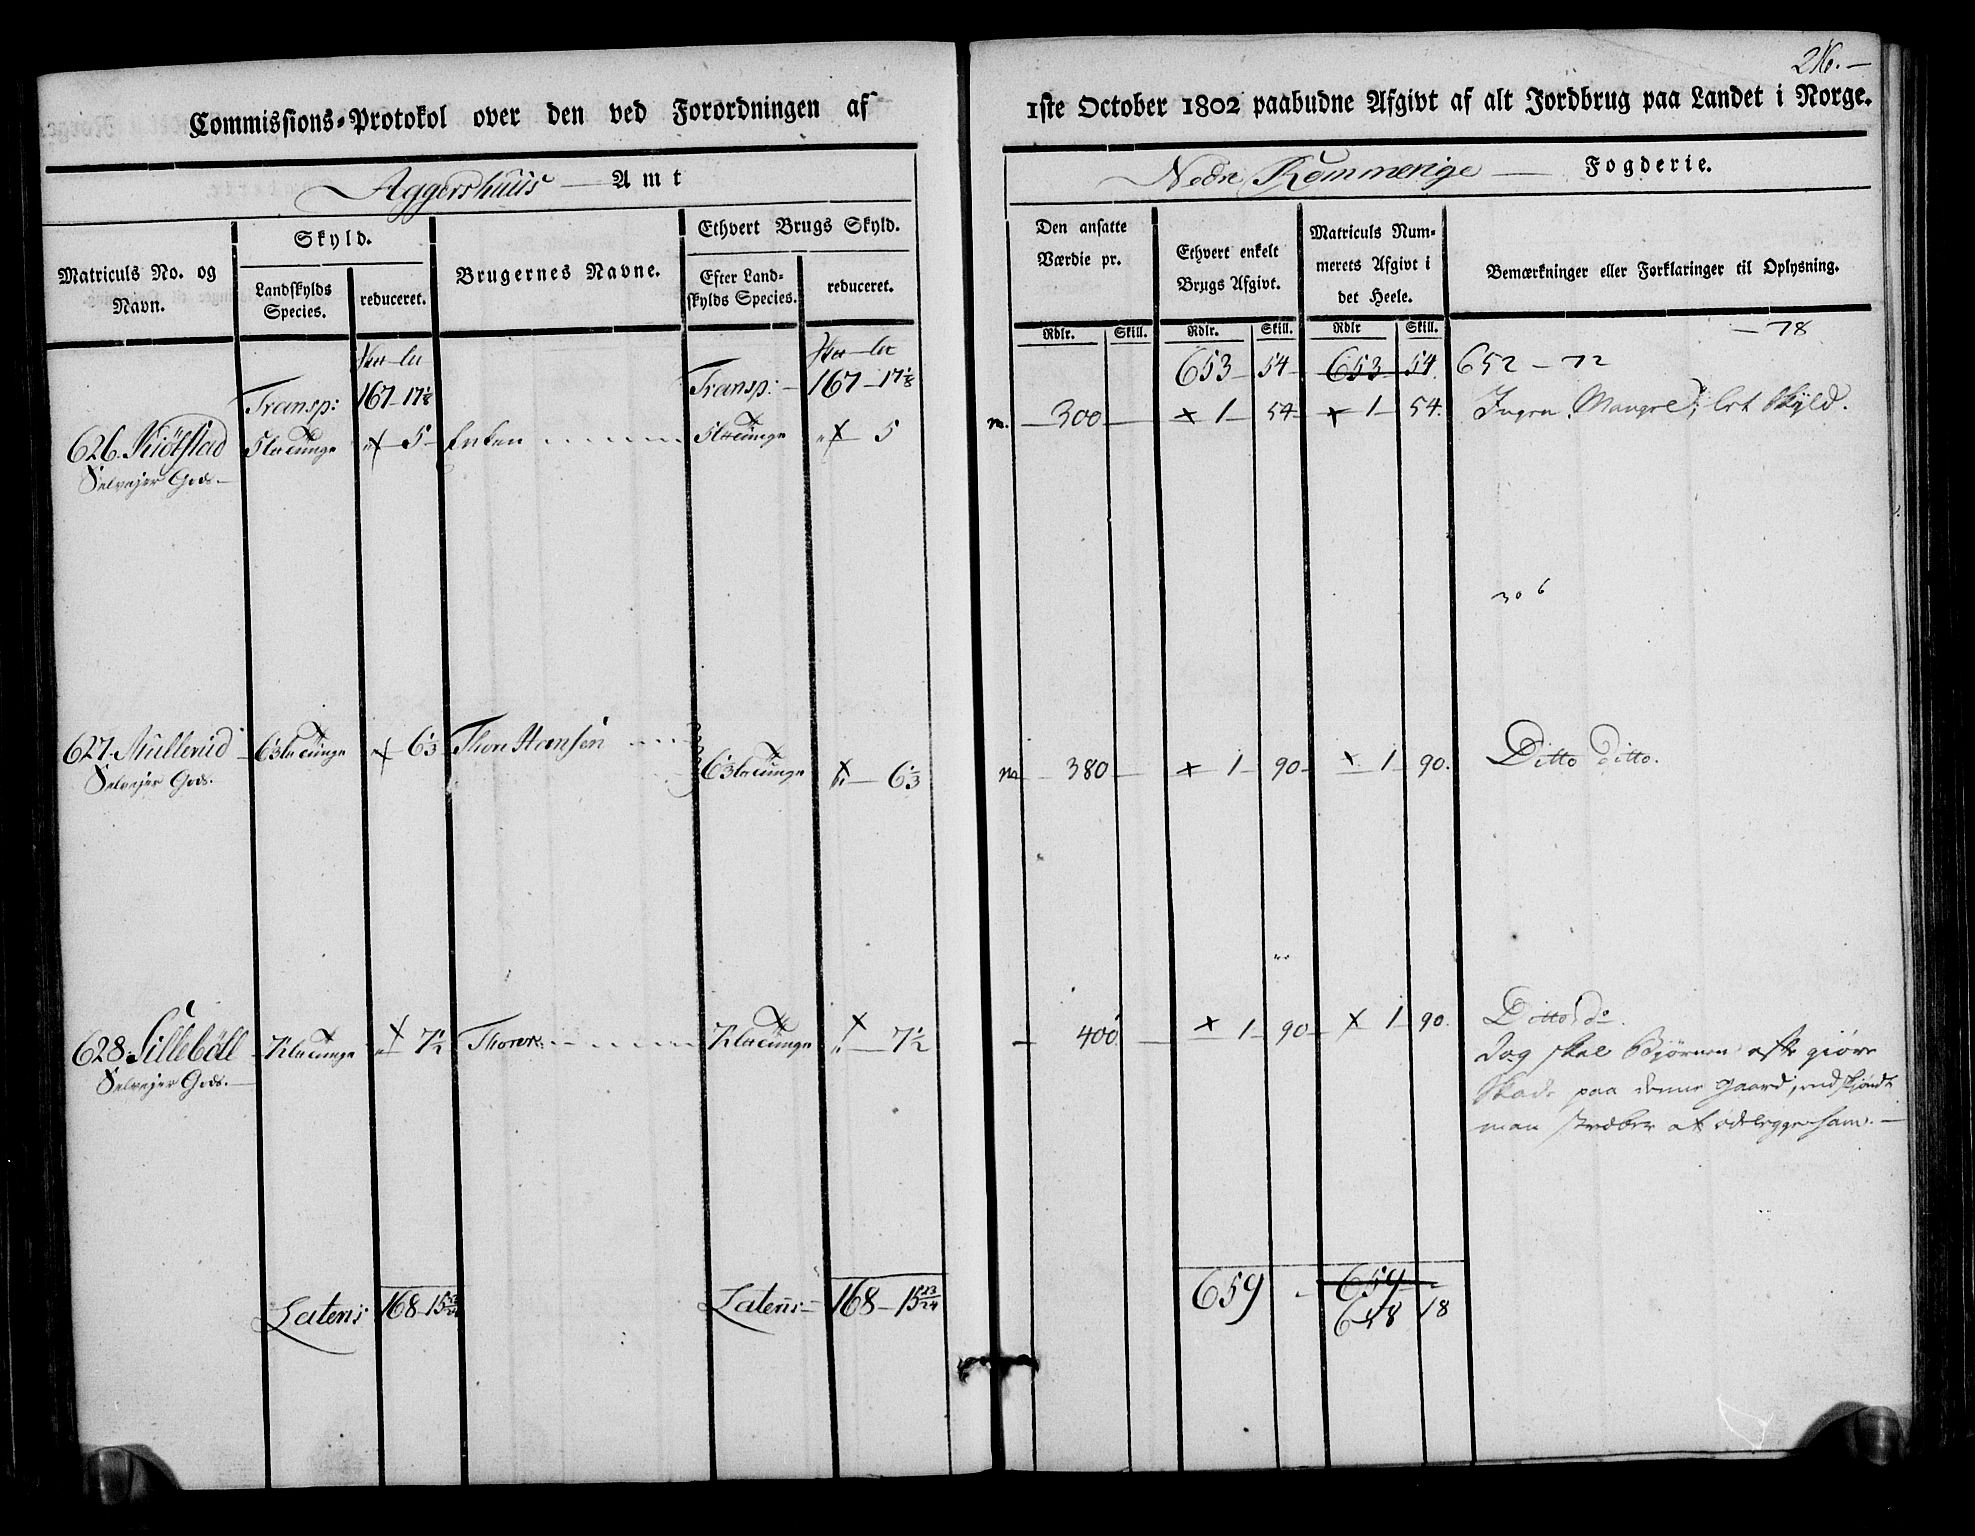 216.—
Commissions-Protokol over den ved Forordningen af
1ste October 1802 paabudne Afgivt af alt Jordbrug paa Landet i Norge.
Aggershuus — Amt
Nedre Rommerige — Fogderie.
Matriculs No. og Navn.
Skyld.
Landskylds Species.
reduceret.
Brugernes Navne.
Ethvert Brugs Skyld.
Efter Landskylds Species.
reduceret.
Den ansatte Værdie pr.
Ethvert enkelt Brugs Afgivt.
Matriculs Nummerets Afgivt i det Heele.
Bemærkninger eller Forklaringer til Oplysning.
Rdlr. Skill. Rdlr. Skill. Rdlr Skill.
— 78
Transp: 167 - 17 1/8 Transp: - 167 - 17 1/8 653 - 54 - 653 - 54. 652 - 72
626. 5 - Enken 5 — 300 — 1 - 54 - 1 - 54. Ingen Mangel; let Skyld.
Selvejer Gods.—
30 6
627. 6 1/3 Thore Hansen 6 1/3 — 380 — 1 - 90 - 1 - 90. Ditto Ditto.
Selvejer Gods.
628. Sillebøll 7 1/2 Thorer 7 1/2 — 400 — 1 - 90 - 1 90. Ditto do.
Selvejer Gods.— Dog skal Bjørnen ofte giøre
Skade paa denne Gaard, endskjøndt
man stræber at ødelægge ham.—
Latens 168 - 15 13/24 Latens — 168 - 15 13/24 659 - 659 -
658 18